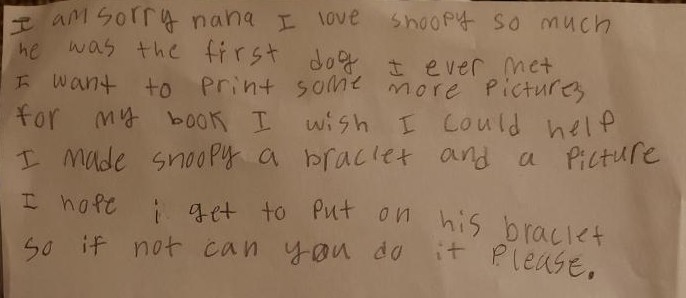 I am sorry nana I love snoopy so much
he was the first dog I ever met
I want to print some more pictures
for my book I wish I could help
I made snoopy a braclet and a picture
I hope i get to put on his braclet
so if not can you do it please.